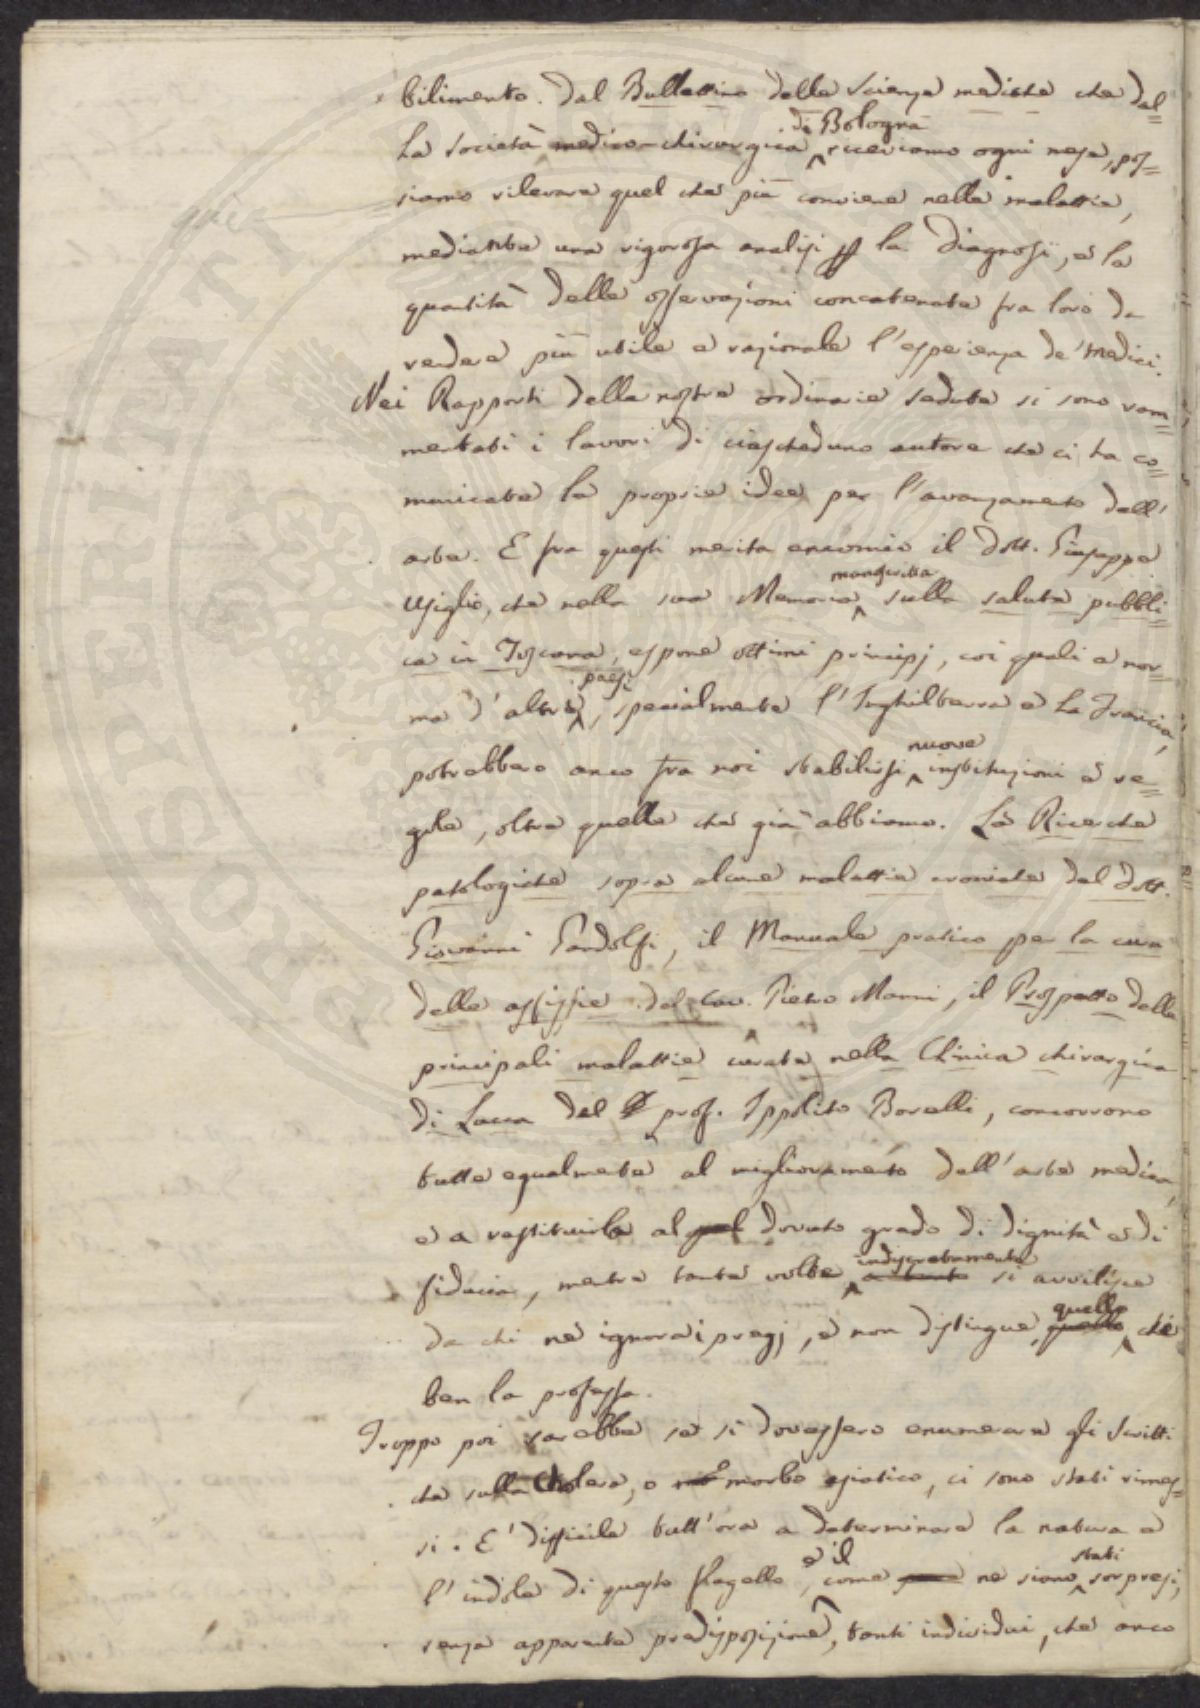 bilimento. Dal Bullettino delle Scienze mediche che dal=
la Società medico-chirurgica di Bologna riceviamo ogni mese, pos=
siamo rilevare quel che più conviene nelle malattie,
mediante una rigorosa analisi la diagnosi, e la
quantità delle osservazioni concatenate fra loro da
rendere più utile e razionale l'esperienza de' Medici.
Nei Rapporti delle nostre ordinarie sedute si sono ram=
mentati i lavori di ciascheduno autore che ci ha co=
municate le proprie idee per l'avanzamento dell'
arte. E fra questi merita encomio il Dott. Giuseppe
Usiglio, che nella sua Memoria manoscritta sulla salute pubbli=
ca in Toscana, espone ottimi principj, coi quali a nor=
ma d'altri paesi, specialmente l'Inghilterra e la Francia,
potrebbero anco fra noi stabilirsi nuove instituzioni e re=
gole, oltre quelle che già abbiamo. Le Ricerche
patologiche sopra alcune malattie croniche del Dott.
Giovanni Gandolfi, il Manuale pratico per la cura
delle assissie del Cav. Pietro Manni, il Prospetto delle
principali malattie curate nella Clinica chirurgica
di Lucca del prof. Ippolito Borelli, concorrono
tutte egualmente al miglioramento dell'arte medica,
e a restituirle al quel dovuto grado di dignità e di
fiducia, mentre tante volte indiscretamente si avvilisce
da chi ne ignora i pregj, e non distingue quello quello che
ben la professa.
Troppo poi sarebbe se si dovessero enumerare gli Scritti
che sulla Cholera, o morbo asiatico, ci sono stati rimes=
si. E' difficile tutt'ora a determinare la natura e
l'indole di questo flagello, e il come ne siano stati sorpresi,
senza apparente predisposizione, tanti individui, che anco